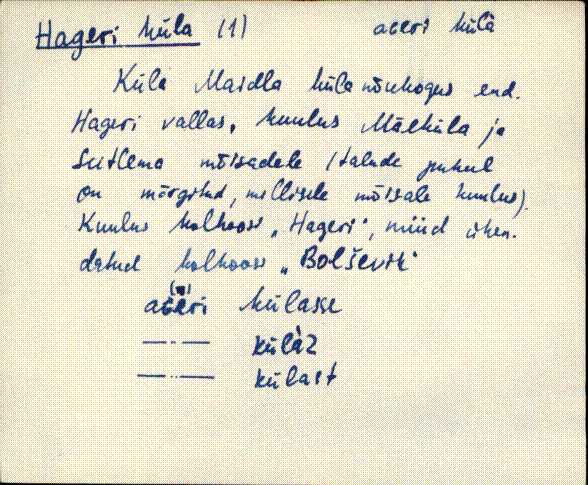 Hageri küla (1) aceri külà
Küla Maidla küla nõukogus end.
Hageri vallas, kuulus Mäeküla ja
Sutlema mõisadele (talude puhul
on märgitud, millisele mõisale kuulus).
Kuulus kolhoosi „Hageri", nüüd ühen-
datud kolhoosi „Bolševik"
aceri külasse
—··— külàz
—··— külast